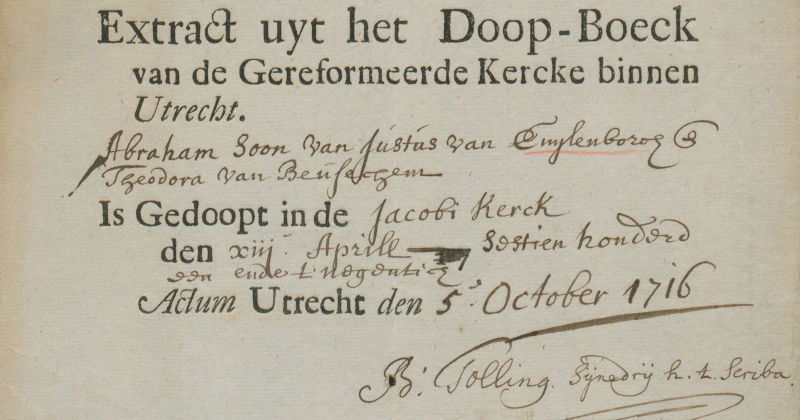 Extract uyt het Doop-Boeck
van de Gereformeerde Kercke binnen
Utrecht.
Abraham Soon van Justus van Cuylenborog &
Theodora van Beusechem
Is Gedoopt in de Jacobi Kerck
den xiij Aprill Sestien honderd
een ende t'negentig
Actum Utrecht den 5 October 1716
B: Tolling. Synedrij h. t. Scriba.